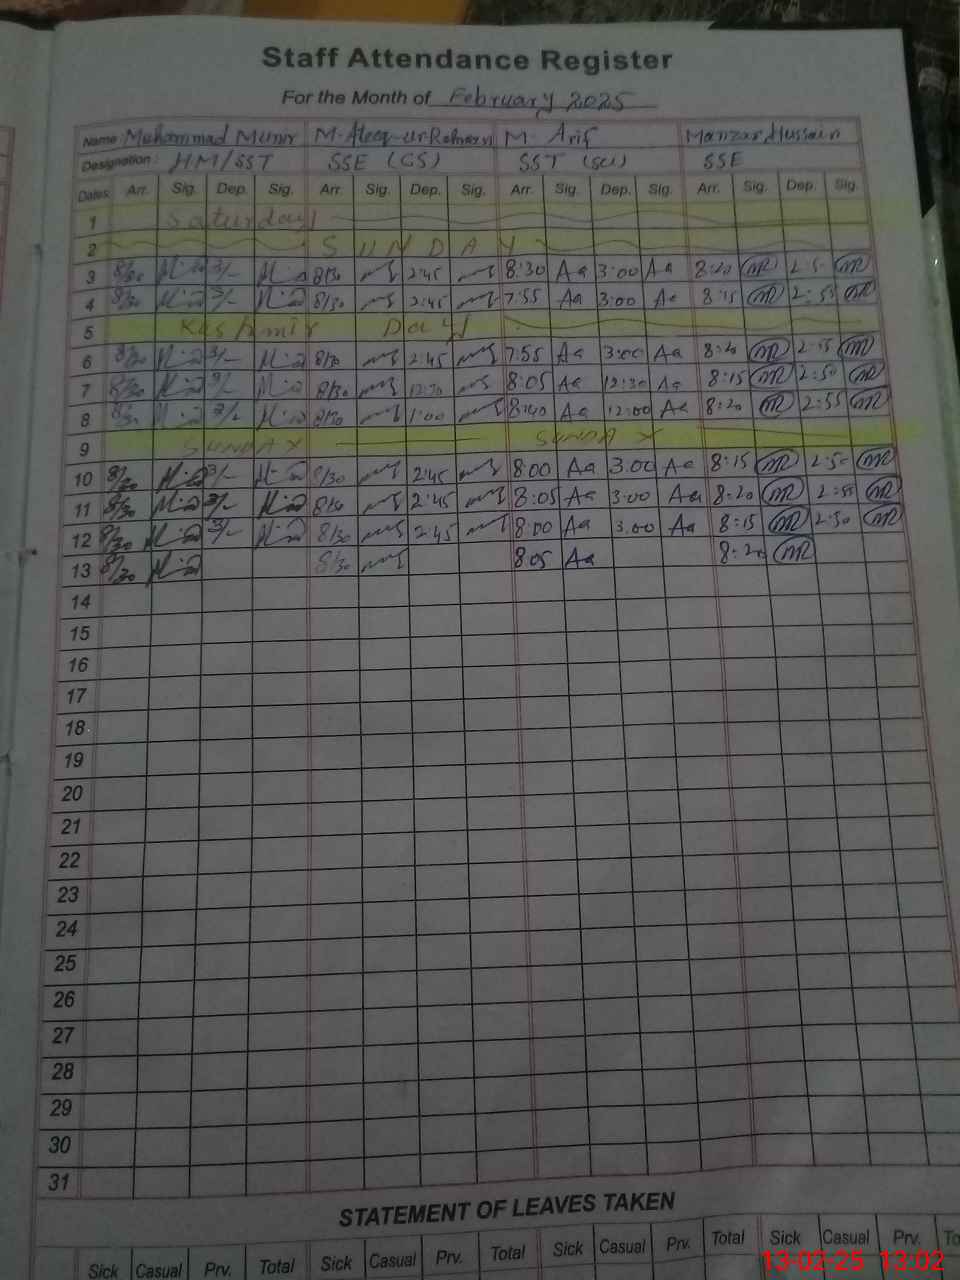 Staff Attendance Register
For the Month of February 2025
Name Muhammad Munir M. Ateeq-ur-Rehman M. Arif Manzar Hussain
Designation: HM/SST SSE (GS) SST (sci) SSE
Dates Arr. Sig. Dep. Sig. Arr. Sig. Dep. Sig. Arr. Sig. Dep. Sig. Arr. Sig. Dep. Sig.
1 Saturday
2 SUNDAY
3 8/30 3/- 8/30 2:45 8:30 Aa 3:00 Aa 8:20 MR MR
4 8/30 3/- 8/30 2:45 7:55 Aa 3:00 Aa 8:15 MR 2:55 MR
5 Kashmir Day
6 8/30 3/- 8/30 2:45 7:55 Aa 3:00 Aa 8:20 MR 2:55 MR
7 8/30 8/30 12:30 8:05 Aa 12:30 Aa 8:15 MR 2:50 MR
8 8/30 8/30 1:00 8:40 Aa 12:00 Aa 8:20 MR 2:55 MR
9 SUNDAY SUNDAY
10 8/30 3/- 8/30 2:45 8:00 Aa 3.00 Aa 8:15 MR 2:50 MR
11 8/30 3/- 8/30 2:45 8:05 Aa 3:00 Aa 8:20 MR 2:55 MR
12 8/30 3/- 8/30 2:45 8:00 Aa 3.00 Aa 8:15 MR 2:50 MR
13 8/30 8/30 8:05 Aa 8:20 MR
14
15
16
17
18
19
20
21
22
23
24
25
26
27
28
29
30
31
STATEMENT OF LEAVES TAKEN
Sick Casual Prv. Total Sick Casual Prv. Total Sick Casual Prv. Total Sick Casual Prv. To
13-02-25 13:02